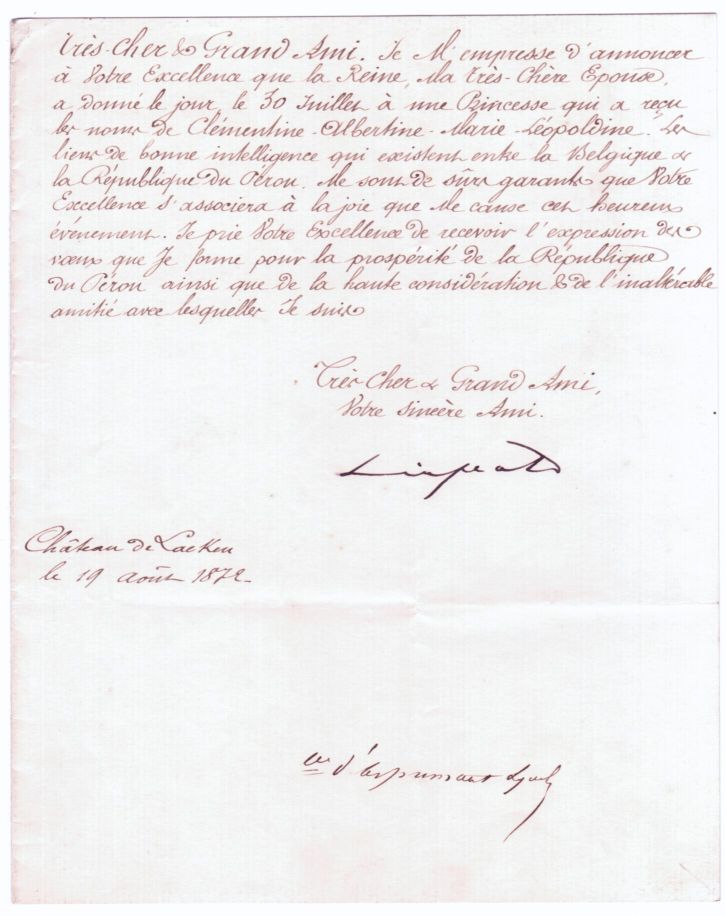 Très-Cher & Grand Ami. Je M'empresse d'annoncer
à Votre Excellence que la Reine, Ma très-Chère Epouse,
a donné le jour, le 30 Juillet à une Princesse qui a reçu
les noms de Clémentine-Albertine-Marie-Léopoldine. Les
liens de bonne intelligence qui existent entre la Belgique &
la République du Pérou, Me sont de sûrs garants que Votre
Excellence s'associera à la joie que Me cause cet heureux
événement. Je prie Votre Excellence de recevoir l'expression des
vœux que Je forme pour la prospérité de la République
du Pérou ainsi que de la haute considération & de l'inaltérable
amitié avec lesquelles Je suis
Très Cher & Grand Ami,
Votre sincère Ami.
Léopold
Château de Laeken
le 19 août 1872.
Cte d'Aspremont Lynden